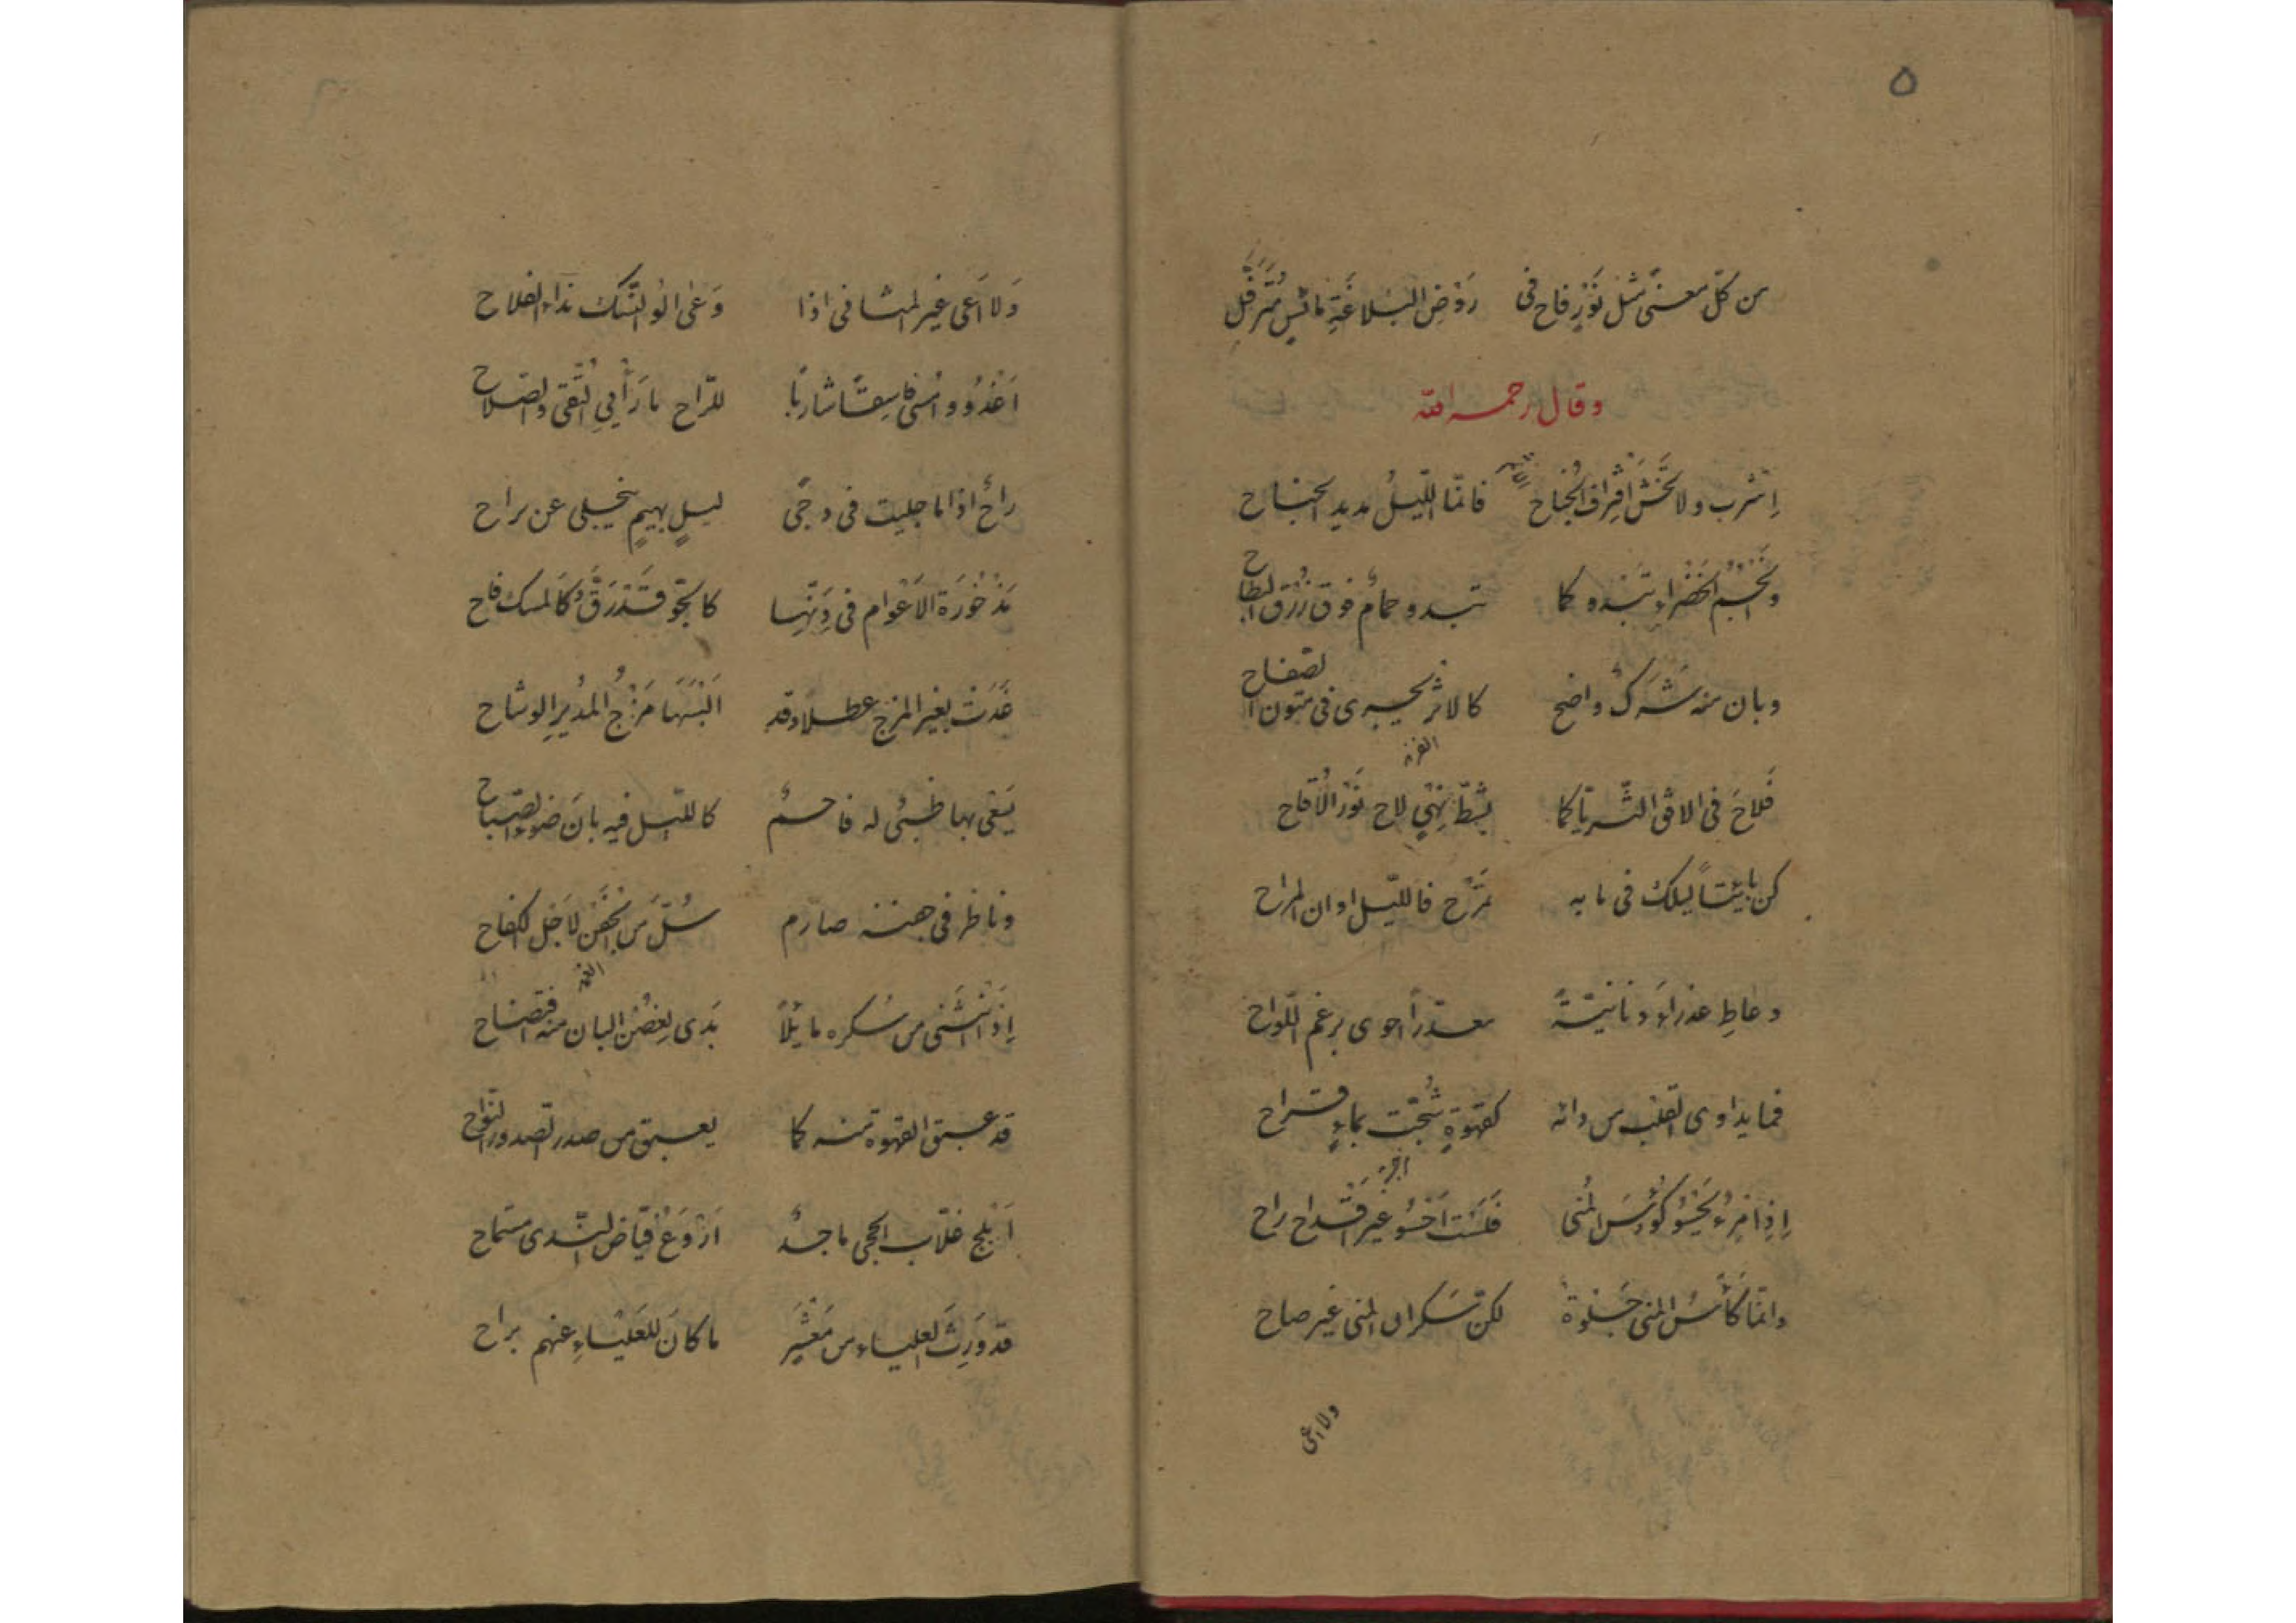 ٥
من كلّ معنىً مثل نَوْرٍ فاح فى رَوْضِ البَلاغَةِ مائسٍ مُتَرَفِّلِ
وقال رحمه الله
اِشرب ولا تخش اقتراف الجُناح فانّما اللّيلُ مديد الجناح
وانجُمُ الخَضْراءِ تَبْدو كما تبدو حمامٌ فوق زُرْق البطاح
وبان منه شَرَكٌ واضح كالاثر يجرى فى متون الصفاح
فَلاحَ فى الافق الثريّا كما بشطّ نِهْىٍ لاح نَوْرُ الاَقاح
كن بائتاً ليلك فى ما به تمرَح فاللّيل اوان المراح
وعاطِ عذراءَ دنانيّةً معذّراً احوى برغم اللّواح
فما يداوى القلب من دائه كقهوةٍ شُجّت بماءٍ قراح
اِذا امرءٌ يَحْسُو كُؤُسَ المُنى فَلَسْت اَحْسُو غير اقداح راح
وانّما كَأْسُ المنى جَذْوةٌ لكنّ سَكران المنى غير صاح
ولا اعى
وَلا اَعى غير المثانى اذا وَعى الُو النُّسك نداء الفلاح
اَغْدُو واُمْسى فاسِقاً شارباً للرّاح ما رَأْيى التُّقى والصلاح
راحٌ اذا ما جليت فى دجًى ليلٍ بهيمٍ ينجلى عن براح
مَذْخُورَة الاَعْوام فى دَنّها كالجوّ قَدْ رَقَّ وَكَالمسك فاح
غَدَت بغير المزج عطلا وقد اَلْبَسَهَا مَزْجُ المُديرِ الوشاح
يَسْقى بها ظبىٌ له فاحمٌ كالليل فيه بانَ ضوء الصباح
وناظر فى جفنه صارم سُلَّ من الجَفْن لاَجْل الكفاح
اِذا انْثَنى من سُكره مائِلاً بَدى لِغصْن البان منه افتضاح
قد عبق القهوة منه كما يعبق من صدر الصدور النّواح
اَبْلج غلّاب الحجى ماجدٌ اَرْوَعُ فيّاض النّدى مستماح
قد وَرِثَ العلياء من مَعْشَرٍ ما كانَ للعَلْياءِ عنهم براح